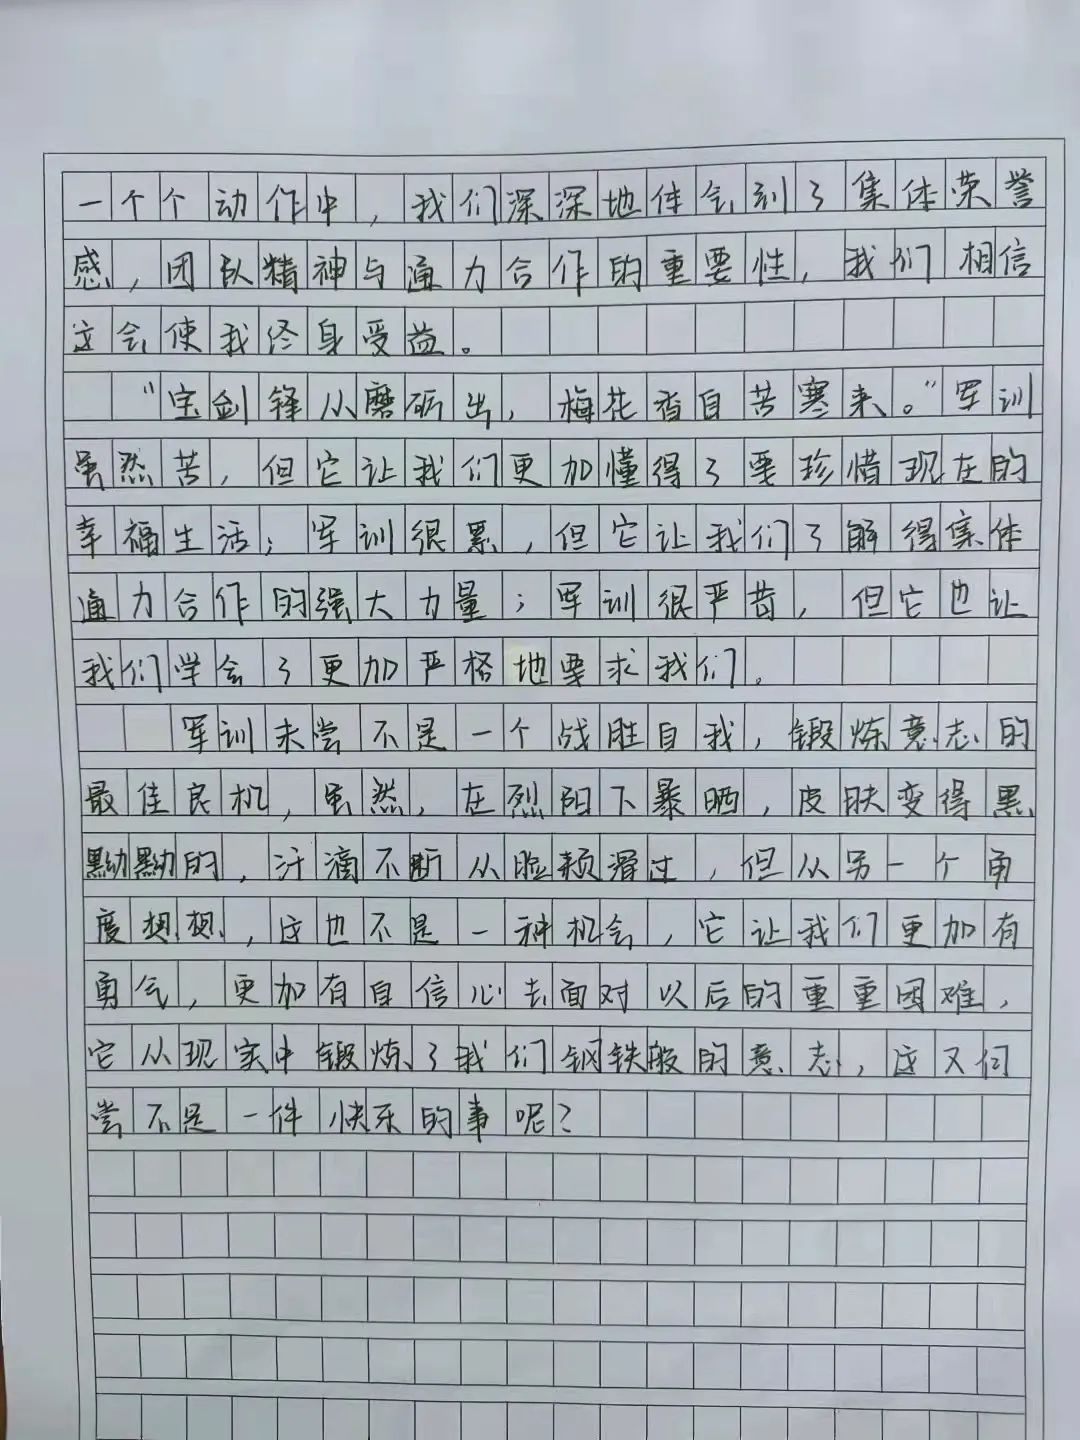 一个个动作中，我们深深地体会到了集体荣誉
感，团队精神与通力合作的重要性，我们相信
这会使我终身受益。
“宝剑锋从磨砺出，梅花香自苦寒来。”军训
虽然苦，但它让我们更加懂得了要珍惜现在的
幸福生活；军训很累，但它让我们了解得集体
通力合作的强大力量；军训很严苛，但它也让
我们学会了更加严格地要求我们。
军训未尝不是一个战胜自我，锻炼意志的
最佳良机，虽然，在烈阳下暴晒，皮肤变得黑
黝黝的，汗滴不断从脸颊滑过，但从另一个角
度想想，这也不是一种机会，它让我们更加有
勇气，更加有自信心去面对以后的重重困难，
它从现实中锻炼了我们钢铁般的意志，这又何
尝不是一件快乐的事呢？